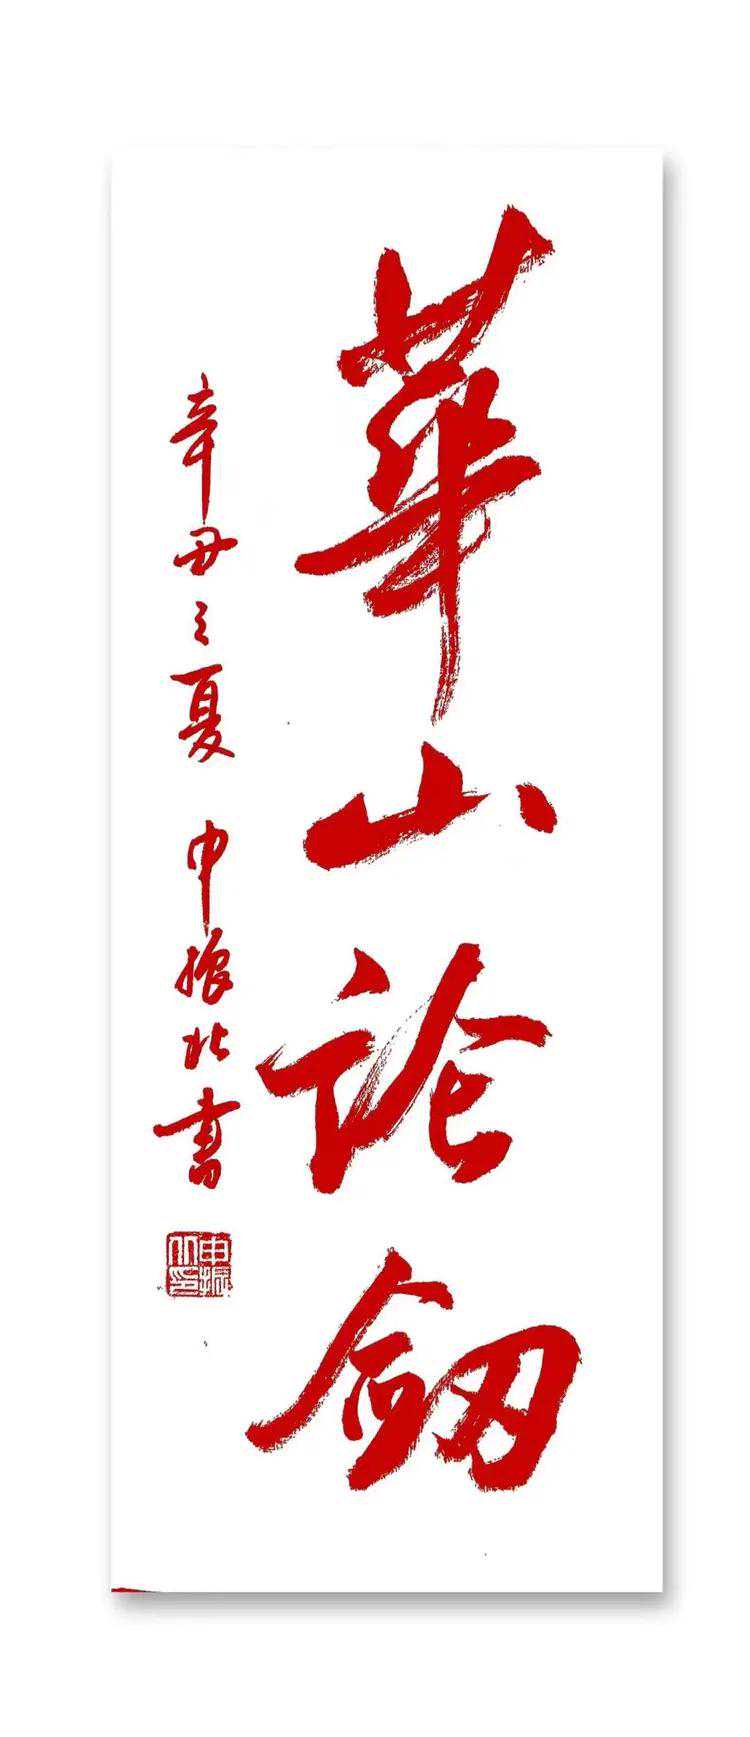 華山论劒
辛丑之夏 申振北書
申振北印